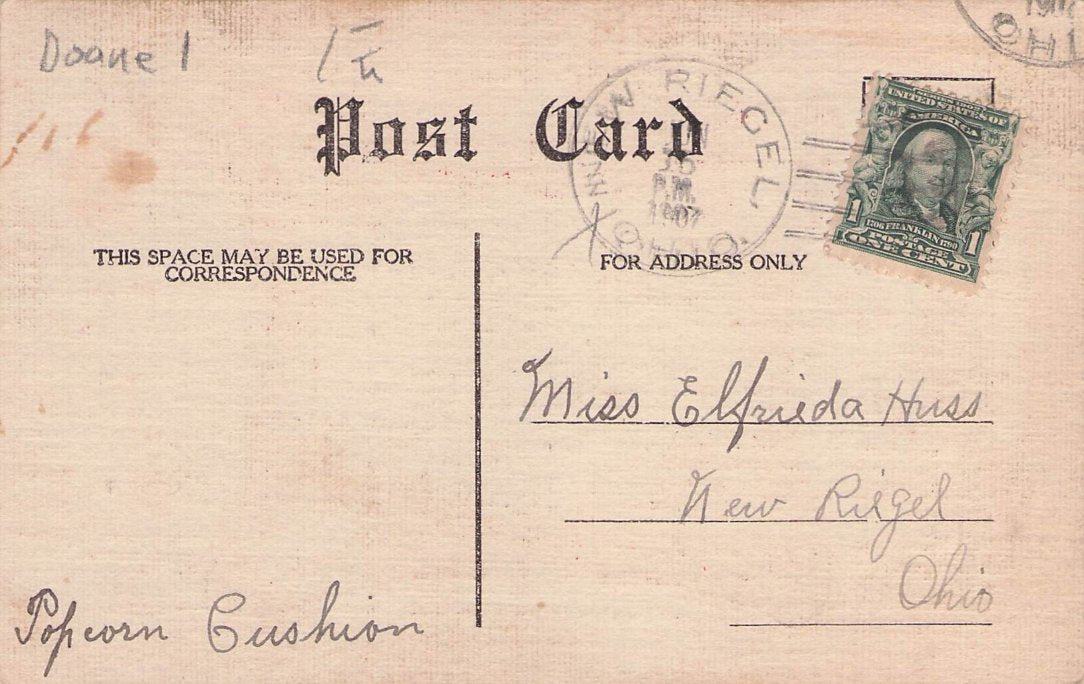 Doane 1
Post Card
NEW RIEGEL
P.M.
1907
OHIO
OHI
SERIES 1902
UNITED STATES OF
AMERICA
1 1706 FRANKLIN 1790 1
POSTAGE
ONE CENT
THIS SPACE MAY BE USED FOR
CORRESPONDENCE
FOR ADDRESS ONLY
Miss Elfrieda Huss
New Riegel
Ohio
Popcorn Cushion